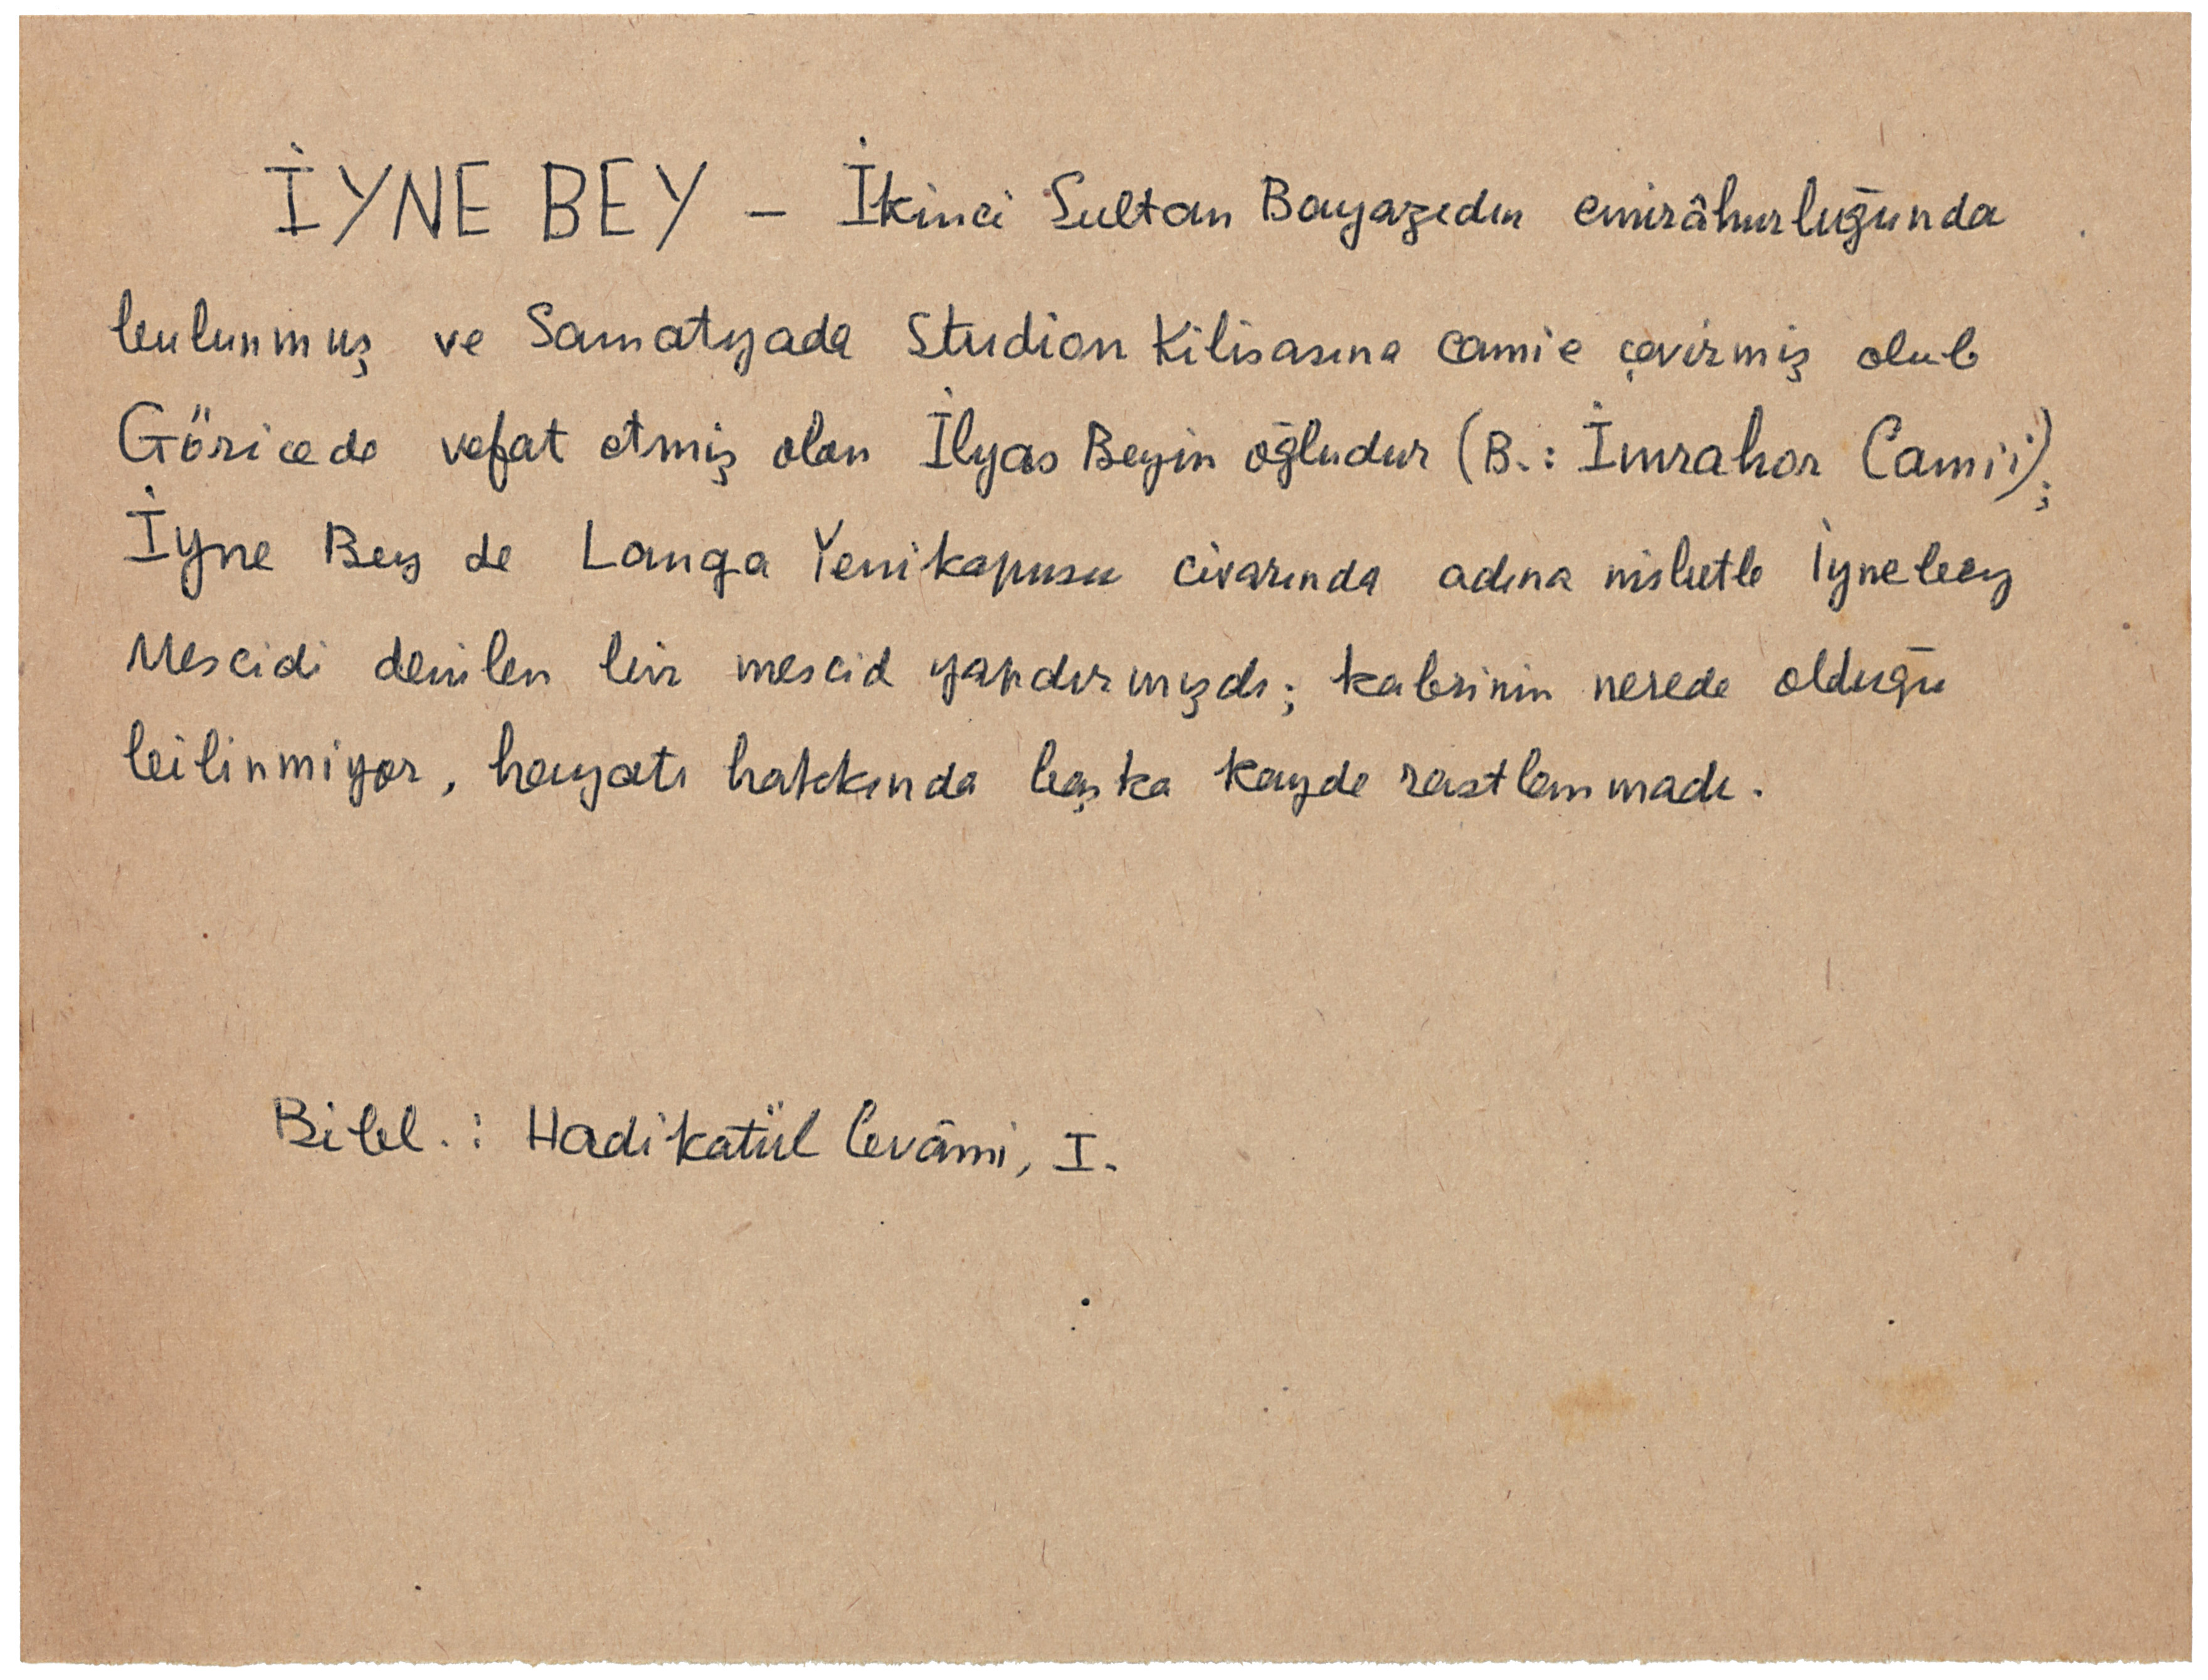 İYNE BEY – İkinci Sultan Bayazıdın emirâhurluğunda
bulunmuş ve Samatyada Studion Kilisasına camie çevirmiş olub
Göricede vefat etmiş olan İlyas Beyin oğludur (B.: İmrahor Camii);
İyne Bey de Langa Yenikapusu civarında adına nisbetle İynebey
Mescidi denilen bir mescid yapdırmışdı; kabrinin nerede olduğu
bilinmiyor, hayatı hakkında başka kayde rastlanmadı.
Bibl.: Hadikatül Cevâmi, I.